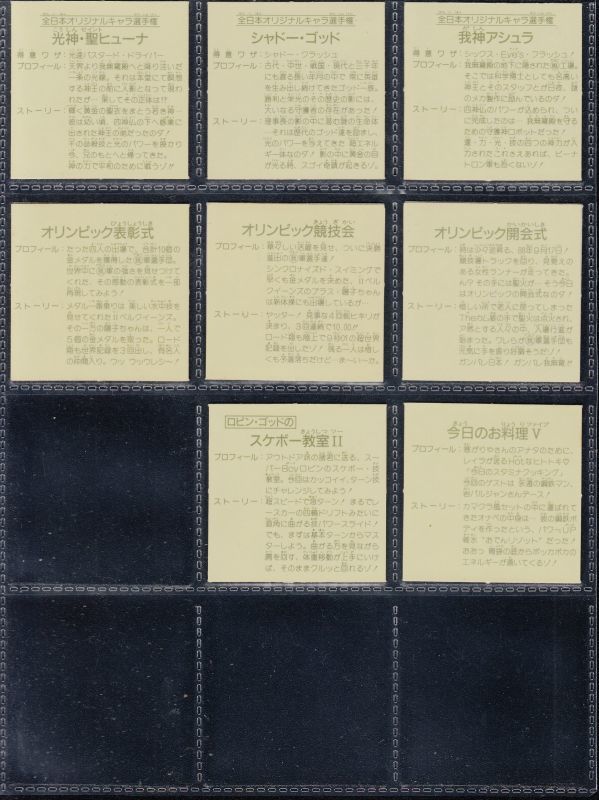 全日本オリジナルキャラ選手権
光神・聖ヒューナ
得意ワザ:光速バスタード・ドライバー
プロフィール:天界より我無羅殿へと降り注いだ
一条の光線。それは本堂にて瞑想
する神王の前に人影となって現わ
れたが…果してその正体は!?
ストーリー:輝く黄金の聖衣をまとう若き神…
彼は幼い頃、四神仏の下へ修業に
出された神王の弟だったのダ!
その御教技と光のパワーを操り
今、兄のもとへと帰ってきた。
神の力で平和のために戦うゾ!!
全日本オリジナルキャラ選手権
シャドー・ゴッド
得意ワザ:シャドー・クラッシュ
プロフィール:古代・中世・戦国・現代と三千年
にも渡る長い年月の中で常に英雄
を生み出し続けてきたゴッド一族。
勝利と栄光のその歴史の影には、
大いなる守護者の存在があった!
ストーリー:理事長の影の中に潜む謎の生命体
…それは歴代のゴッド達を励まし、
光のパワーを与えてきた 超エネル
ギー体なのダ! 影の中に黄金の目
が光る時、スゴイ奇蹟が起きるゾ。
全日本オリジナルキャラ選手権
我神アシュラ
得意ワザ:シックス・Eye's・フラッシュ!
プロフィール:我無羅殿の地下に隠された㊙工場。
そこでは科学博士としても名高い
神王とそのスタッフとが日夜、謎
のメカ製作に励んでいるのダ!
ストーリー:四神仏のパワーが込められ、つい
に完成したのは…我無羅殿を守るた
めの守護神ロボットだった!
運・力・光・技の四つの神力が入
力されたこれさえあれば、ビーナ
トロン軍も恐くないゾ!
オリンピック表彰式
プロフィール:たった四人の出場で、合計10個の
金メダルを獲得した㊝軍選手団。
世界中に㊝軍の強さを見せつけて
くれた、その感動の表彰式を一部
再現してみよう!
ストーリー:メダル一番乗りは 美しい水中技を
見せてくれたIIベルクイーンズ。
その一方の麗子ちゃんは、一人で
5個の金メダルを取った。ロード
種も世界記録を3回出し、有名人
の仲間入り。ウッ ウッウレシー!
オリンピック競技会
プロフィール:華々しい活躍を見せ、ついに決勝
進出の㊝軍選手達!
シンクロナイズド・スイミングで
早くも金メダルを決めた、IIベル
クイーンズのプラス・麗子ちゃん
は新体操にも出場しているが…
ストーリー:ヤッター! 見事な4回転ヒネリが
決まり、3回連続で10.00!!
ロード種も陸上で9秒01の超世界
記録を出したゾ! 残る一人は惜し
くも予選落ちだけど…ま～い～た。
オリンピック開会式
プロフィール:時は少々逆昇る、88年9月17日!
競技場トラックを回り、見覚えの
ある女性ランナーが走ってきた。
ん? その手には聖火が…そう今日
はオリンピックの開会式なのダ!
ロビン・ゴッドの
スケボー教室II
プロフィール:アウトドア派の諸君に送る、スー
パーBoyロビンのスケボー・技
教室。今回はカッコイイ、ターン技
にチャレンジしてみよう!
ストーリー:超スピードで急ターン! まるでレ
ースカーの四輪ドリフトみたいに
直角に曲がる技・パワースライド!
でも、まずは基本ターンからマス
ターしよう。曲がる方を見ながら
肩を回す、体重移動が上手にいけ
ば、そのままクルッと回れるゾ!
今日のお料理V
プロフィール:暑がりやさんのアナタのために、
レイラが送るHotなヒトトキ♥
『今日のスタミナクッキング』
今回のゲストは 永遠の鋼鉄マン、
岩バルジャンさんデース!
ストーリー:カマクラ風セットの中に運ばれて
きたオナベの中身は…彼の鋼鉄ボ
ディを作ったという、パワーUP
着水“おでんリゾット”だった!
おおっ 胃袋の底からポッカポカの
エネルギーが湧いてくるゾ!